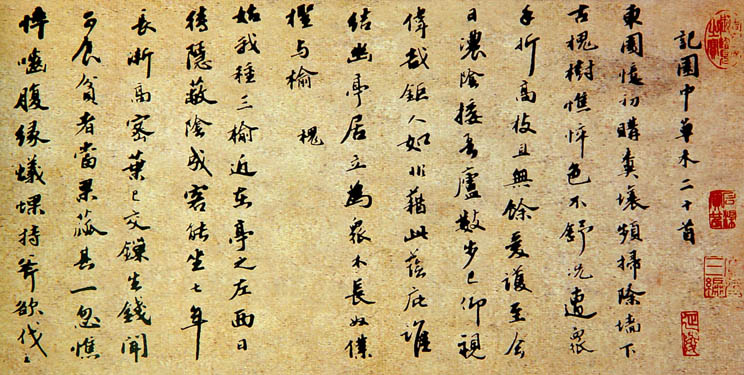 記園中草木二十首
東園憶初購糞壤頻掃除墻下
古槐樹憔悴色不舒況遭衆
手折高枝且無餘愛護至今
日濃陰接吾廬散步已仰觀
偉哉鉅人如非藉此蔭庇誰
結幽亭居立為衆木長奴僕
櫻與榆 槐
始我種三榆近在亭之左西日
待隱蔽陰成客能坐七年
長漸高密葉已交鎖生錢聞
可食貧者當果蓏其一忽憔
悴嚙腹緣蟻蜾持斧欲伐之